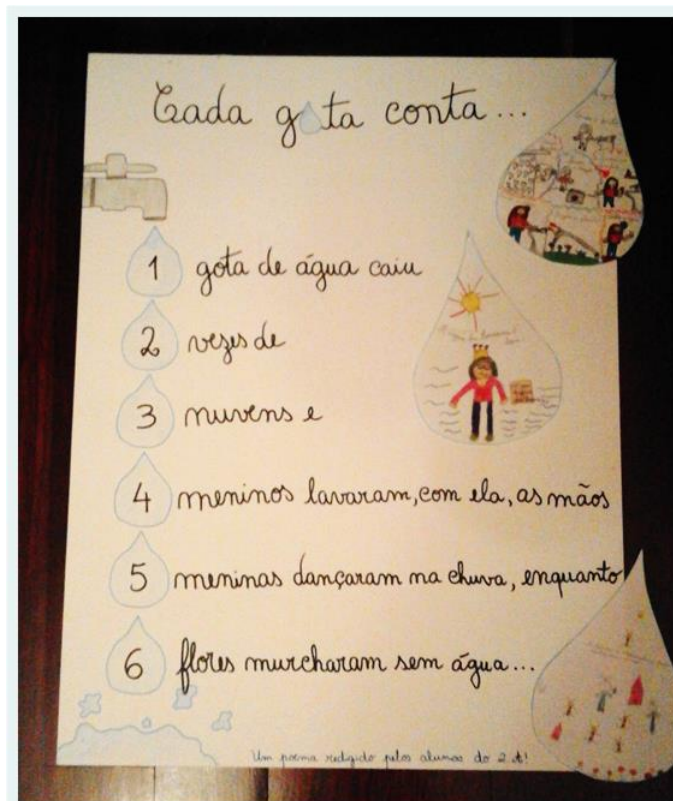 Cada gota conta...
1 gota de água caiu
2 vezes de
3 nuvens e
4 meninos lavaram, com ela, as mãos
5 meninas dançaram na chuva, enquanto
6 flores murcharam sem água...
Um poema redigido pelos alunos do 2.A!